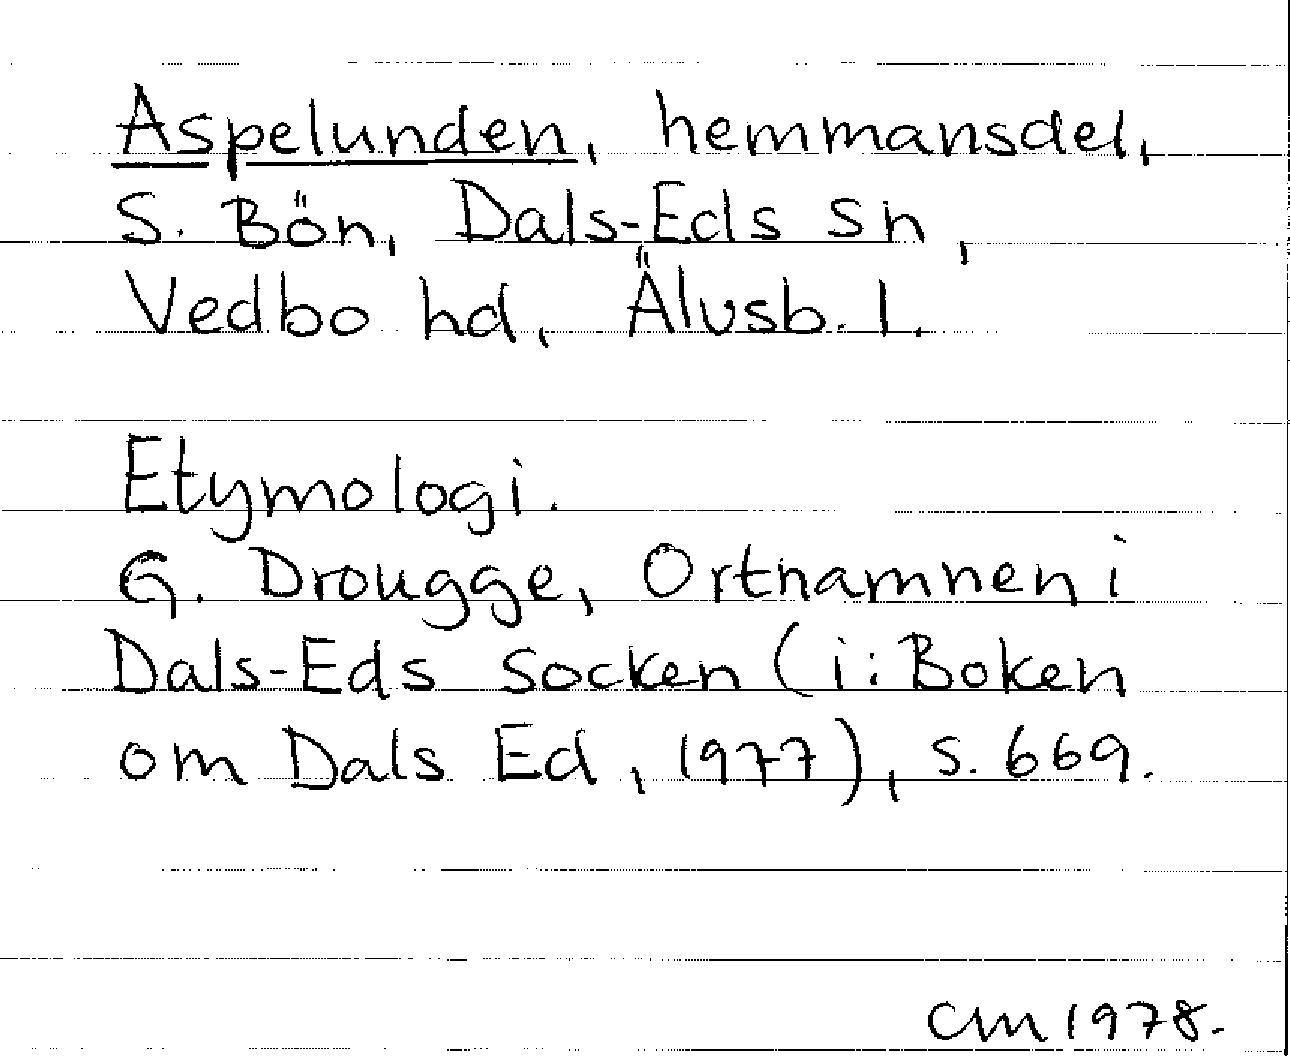 Aspelunden, hemmansdel,
S. Bön, Dals-Eds sn,
Vedbo hd, Älvsb. l.
Etymologi.
G. Drougge, Ortnamnen i
Dals-Eds socken (i: Boken
om Dals Ed, 1977), s. 669.
CM 1978.